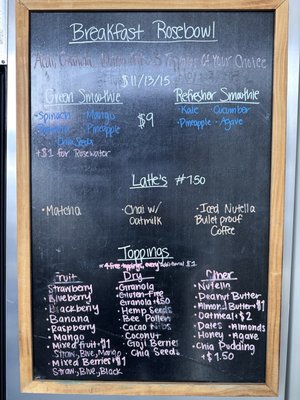 Breakfast Rosebowl
Acai, Granola, Toppings Of Your Choice
$11/13/15
Green Smoothie
Refresher Smoothie
• Spinach • Mango
• Pineapple
• Chia Seeds
+$1 for Rosewater
• Kale • Cucumber
• Pineapple • Agave
$9
Latte's $7.50
• Matcha
• Chai w/
Oatmilk
• Iced Nutella
Bullet proof
Coffee
Toppings
* 4 free toppings, every additional $1
Fruit
Strawberry
Blueberry
Blackberry
Banana
Raspberry
• Mango
• Mixed fruit +$1
Straw, Blue, Mango
• Mixed Berries $1
Straw, Blue, Black
Dry
• Granola
• Gluten-Free
Granola +$.50
• Hemp Seeds
• Bee Pollen
• Cacao Nibs
• Coconut
• Goji Berries
• Chia Seeds
Other
• Nutella
• Peanut Butter
• Almond Butter +$1
• Oatmeal +$2
• Dates • Almonds
• Honey • Agave
• Chia Pudding
+$1.50